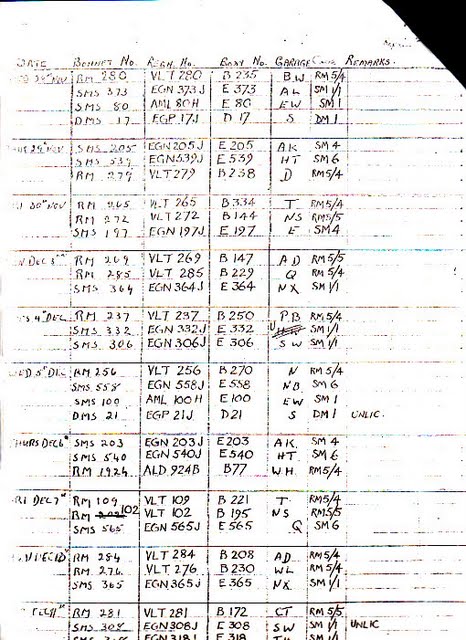 DATE BONNET No. REGN. No. BODY No. GARAGE CODE REMARKS.
28" NOV RM 280 VLT 280 B 235 BW RM 5/4
SMS 373 EGN 373J E 373 AL SM 1/1
SMS 80 AML 80H E 80 EW SM1
DMS 17 EGP 17J D 17 S DM1
29" NOV SMS 205 EGN 205J E 205 AK SM 4
SMS 539 EGN 539J E 539 HT SM 6
RM 279 VLT 279 B 238 D RM5/4
30" NOV RM 265 VLT 265 B 334 T RM5/4
RM 272 VLT 272 B 144 NS RM5/5
SMS 197 EGN 197J E 197 E SM4
N DEC 3" RM 269 VLT 269 B 147 AD RM 5/5
RM 285 VLT 285 B 229 Q RM 5/4
SMS 364 EGN 364J E 364 NX SM 1/1
S 4" DEC RM 237 VLT 237 B 250 PB RM 5/4
SMS 332 EGN 332J E 332 U SM 1/1
SMS 306 EGN 306J E 306 SW SM 1/1
ED 5" DEC RM 256 VLT 256 B 270 N RM 5/4
SMS 558 EGN 558J E 558 NB SM 6
SMS 100 AML 100H E 100 EW SM 1
DMS 21 EGP 21J D21 S DM 1 UNLIC.
HURS DEC 6" SMS 203 EGN 203J E 203 AK SM 4
SMS 540 EGN 540J E 540 HT SM 6
RM 1924 ALD 924B B77 WH RM5/4
RI DEC 7" RM 109 VLT 109 B 221 T RM5/4
RM 102 VLT 102 B 195 NS RM5/5
SMS 565 EGN 565J E 565 Q SM 6
N DEC 10" RM 284 VLT 284 B 208 AD RM 5/4
RM 276 VLT 276 B 230 WL RM 5/4
SMS 365 EGN 365J E 365 NX SM 1/1
DEC 11" RM 281 VLT 281 B 172 CT RM 5/5
SMS 308 EGN 308J E 308 SW SM 1/1 UNLIC
EGN 318J E 318